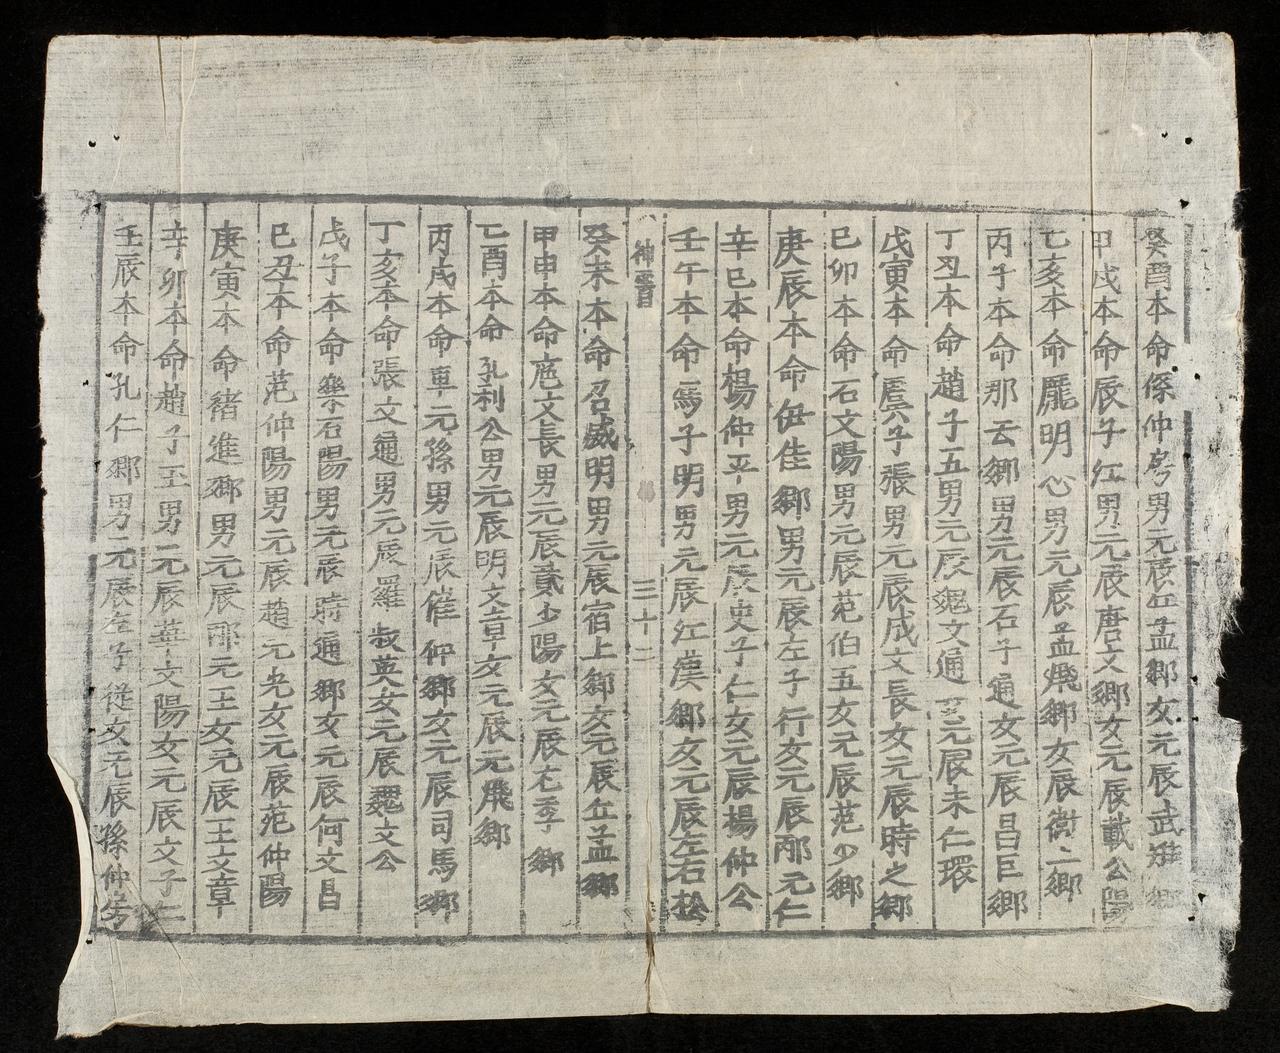 癸酉本命係仲房男元辰丘孟鄉女元辰武
甲戌本命辰子江男元辰唐文鄉女元辰載公陽
乙亥本命龐明心男元辰孟飛鄉女辰衛二鄉
丙子本命那云鄉男元辰石子通女元辰昌巨鄉
丁丑本命趙子五男元辰魏文通女元辰未仁環
戊寅本命虞子張男元辰成文長女元辰時之鄉
己卯本命石文陽男元辰范伯五女元辰范少鄉
庚辰本命伊佳鄉男元辰左子行女元辰邴元仁
辛巳本命楊仲平男元辰史子仁女元辰楊仲公
壬午本命馬子明男元辰江漢鄉女元辰左右松
神霄 三十二
癸未本命召威明男元辰宿上鄉女元辰丘孟鄉
甲申本命扈文長男元辰貳少陽女元辰左季鄉
乙酉本命孔利公男元辰明文章女元辰元飛鄉
丙戌本命車元孫男元辰催仲鄉女元辰司馬鄉
丁亥本命張文通男元辰羅叔英女元辰魏文公
戊子本命樂石陽男元辰時通鄉女元辰何文昌
己丑本命范仲陽男元辰趙元先女元辰范仲陽
庚寅本命褚進鄉男元辰邴元王女元辰王文章
辛卯本命趙子玉男元辰華文陽女元辰文子仁
壬辰本命孔仁鄉男元辰左子從女元辰孫仲房